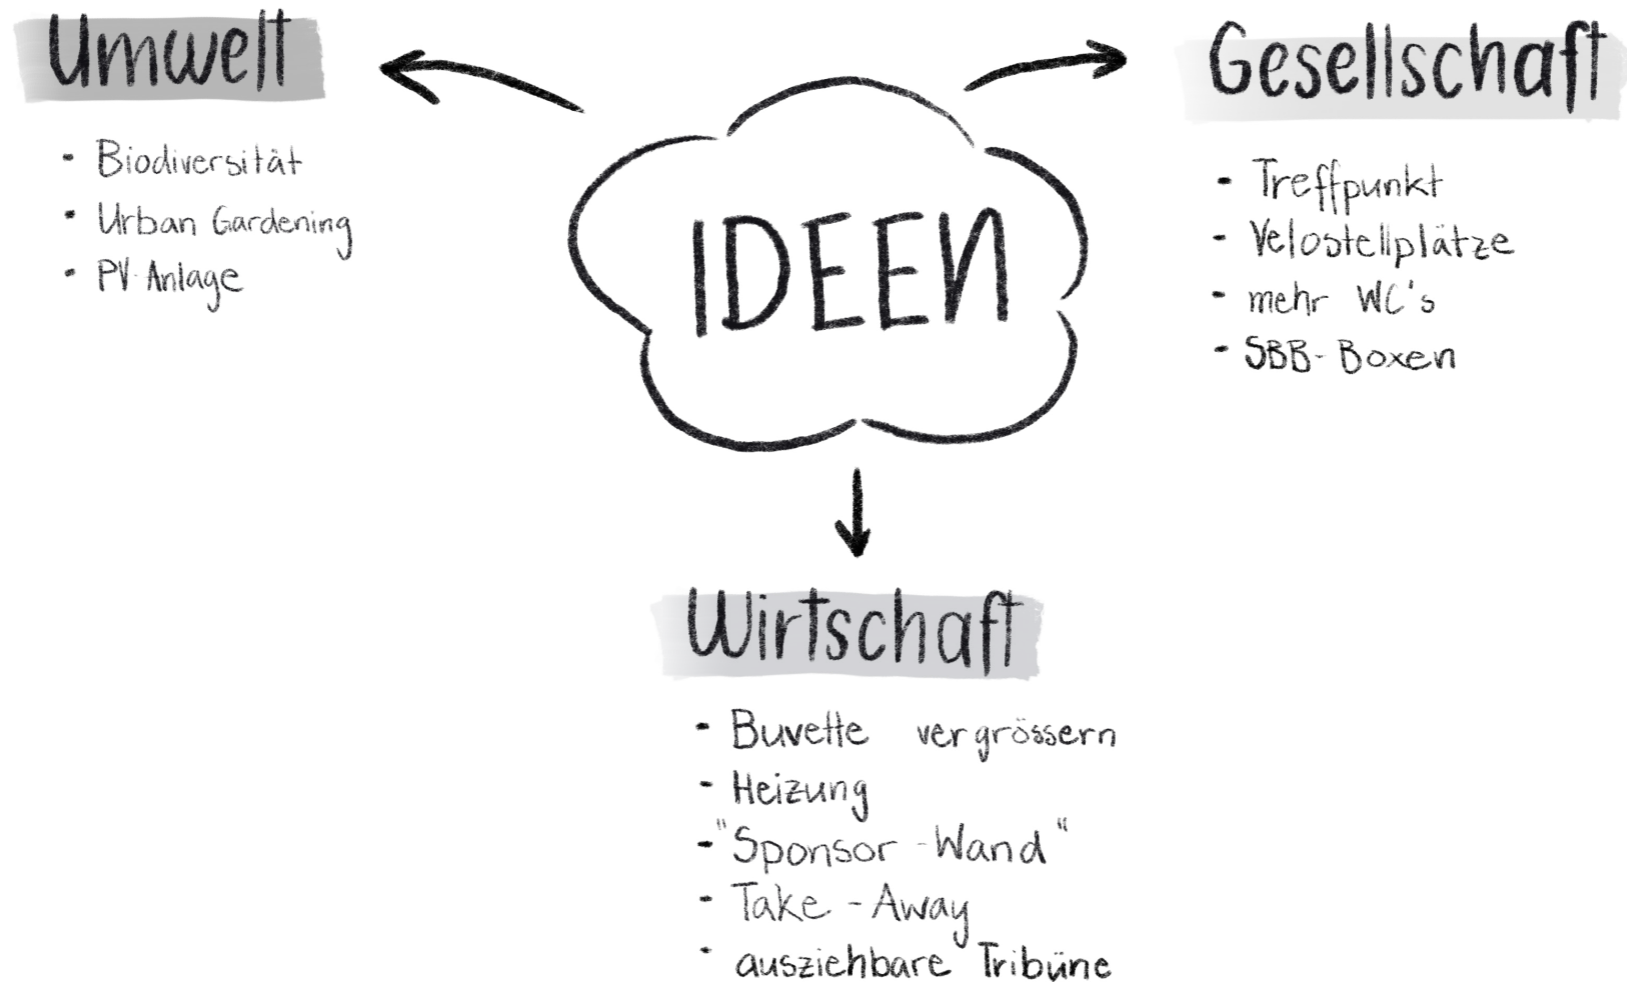 Umwelt
- Biodiversität
- Urban Gardening
- PV-Anlage
IDEEN
Gesellschaft
- Treffpunkt
- Velostellplätze
- mehr WC's
- SBB-Boxen
Wirtschaft
- Buvette vergrössern
- Heizung
- "Sponsor-Wand"
- Take-Away
- ausziehbare Tribüne